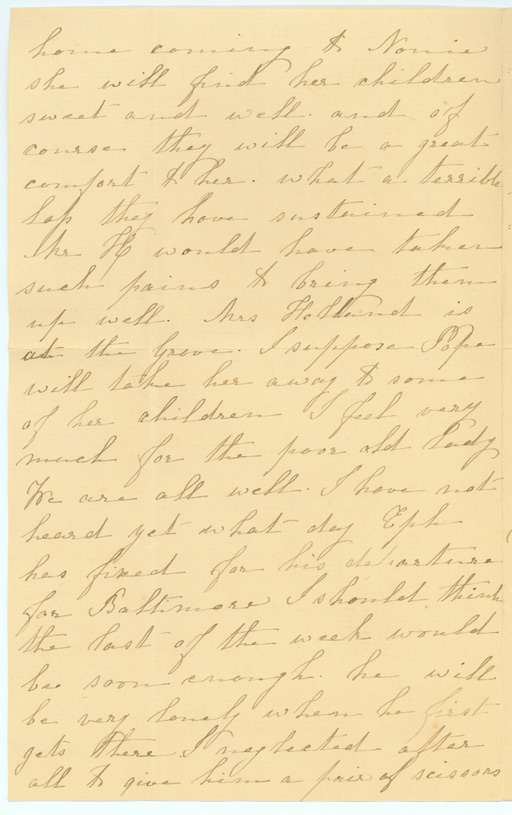 home coming to Nonie
she will find her children
sweet and well. and of
course they will be a great
comfort to her. what a terrible
loss they have sustained
Mr H would have taken
such pains to bring them
up well. Mrs Holland is
at the Grove. I suppose Pope
will take her away to some
of her children I feel very
much for the poor old lady
We are all well. I have not
heard yet what day Eph
has fixed for his departure
for Baltimore I should think
the last of the week would
be soon enough. he will
be very lonely when he first
gets there I neglected after
all to give him a pair of scissors